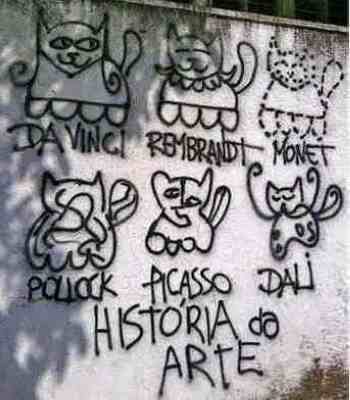 DA VINCI REMBRANDT MONET
POLLOCK PICASSO DALI
HISTÓRIA da
ARTE